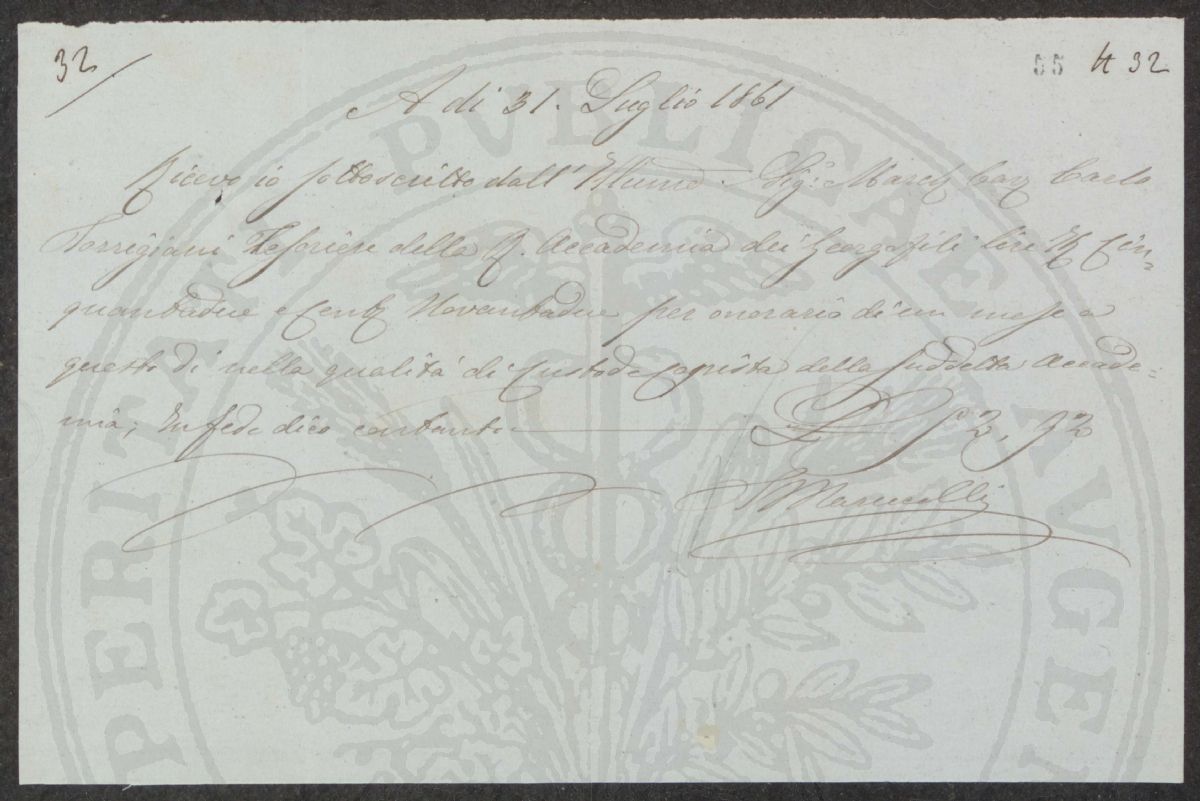 32
55 # 32
A di 31. Luglio 1861
Ricevo io sottoscritto dall' Illumo. Sig: March Cav Carlo
Torrigiani Tesoriere della R. Accademia dei Georgofili lire It. Cin=
quantadue e Cent. Novantadue per onorario di un mese a
questo dì nella qualità di Custode Copista della suddetta Accade=
mia; In fede dico contanti L 52, 92
Marucelli
PERITATI PVBLICAE AVGE